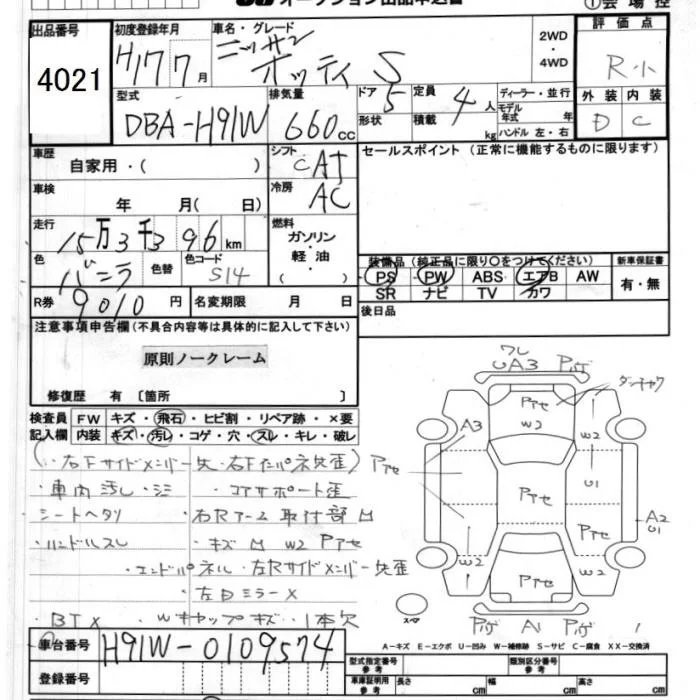 オークション出品申込書
①会場控
出品番号 4021
初度登録年月 H17 7月
車名・グレード ニッサン オッティ S
2WD・4WD
評価点 R小
型式 DBA-H91W
排気量 660cc
ドア 5 形状
定員 4人 積載 kg
ディーラー・並行
モデル年式 年
ハンドル 左・右
外装 内装
D C
車歴 自家用・( )
シフト CAT
セールスポイント (正常に機能するものに限ります)
車検 年 月( 日)
冷房 AC
走行 15万3千396km
燃料 ガソリン・軽油・( )
色 バニラ 色替 色コード S14
装備品 (純正品に限り○をつけてください)
新車保証書
PS PW ABS エアB AW
有・無
SR ナビ TV カワ
R券 9010円
名変期限 月 日
後日品
注意事項申告欄 (不具合内容等は具体的に記入して下さい)
原則ノークレーム
修復歴 有 [箇所 ]
検査員 FW キズ・飛石・ヒビ割・リペア跡・×要
記入欄 内装 キズ・汚レ・コゲ・穴・スレ・キレ・破レ
ワレ
UA3 Pハゲ
Pアセ
W2
A3
W2
Pアセ
U1
Pアセ
A2
U1
Pアセ
W2
W2
Pアセ
スペア
Pハゲ A1 Pハゲ
・車内汚レ・シミ ・コアサポート歪
シートヘタリ ・右Rアーム取付部凹
・ハンドルスレ ・キズ凹 W2 Pアセ
・エンドパネル・左Rサイドメンバー先歪
・左Dミラー×
・Wキャップキズ・1本欠
A－キズ E－エクボ U－凹み W－補修跡 S－サビ C－腐食 XX－交換済
車台番号 H91W-0109574
登録番号
型式指定番号 参考
類別区分番号 参考
車庫証明用 参考 長さ cm 幅 cm 高さ cm